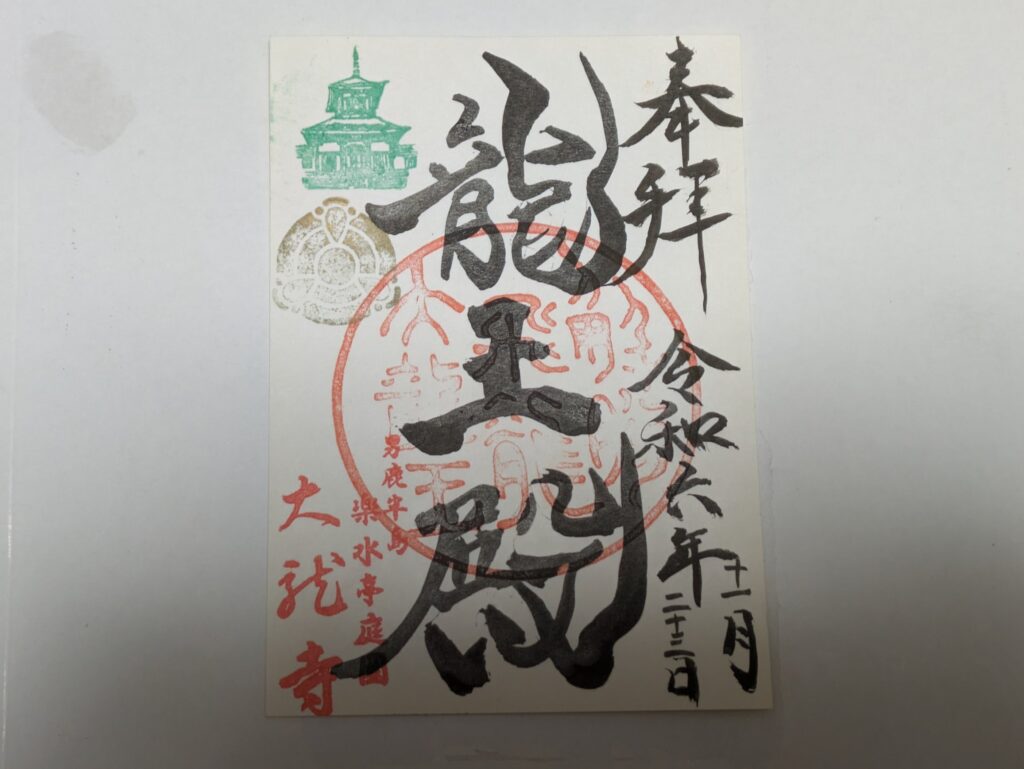 奉拝
令和六年
十一月
二十三日
龍王殿
男鹿半島
楽水亭庭園
大龍寺